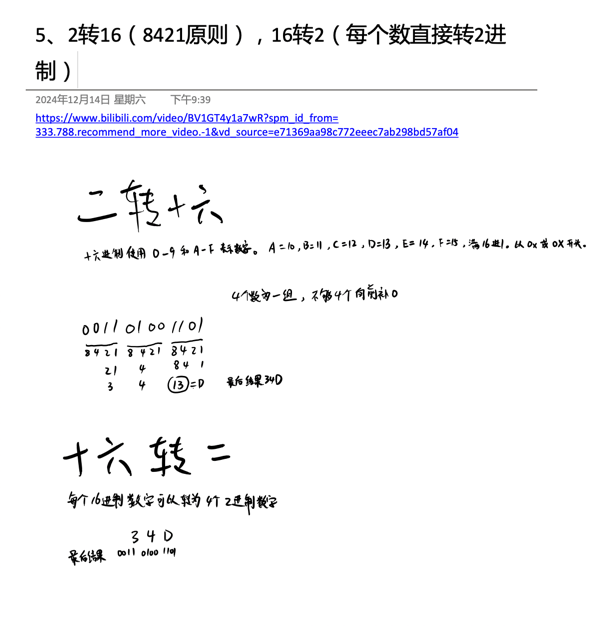 5、2转16（8421原则），16转2（每个数直接转2进
制）
2024年12月14日 星期六 下午9:39
https://www.bilibili.com/video/BV1GT4y1a7wR?spm_id_from=
333.788.recommend_more_video.-1&vd_source=e71369aa98c772eeec7ab298bd57af04
二转十六
十六进制使用 0-9 和 A-F 表示数字。 A=10,B=11,C=12,D=13,E=14,F=15,满16进1。以0x或0X开头。
4个数为一组，不够4个向前补0
0011 0100 1101
8421 8421 8421
21 4 84 1
3 4 13=D 最后结果34D
十六转二
每个16进制数字可以转为4个2进制数字
3 4 D
最后结果 0011 0100 1101